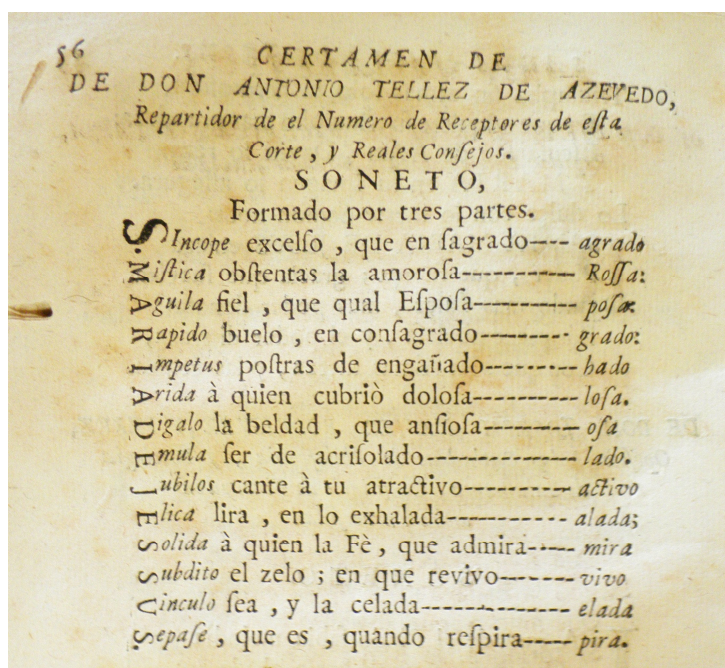 56
CERTAMEN DE
DE DON ANTONIO TELLEZ DE AZEVEDO,
Repartidor de el Numero de Receptores de eſta
Corte, y Reales Conſejos.
SONETO,
Formado por tres partes.
SIncope excelſo, que en ſagrado---- agrado
Miſtica obſtentas la amoroſa---------- Roſſa:
Aguila fiel, que qual Eſpoſa---------- poſa.
Rapido buelo, en conſagrado--------- grado:
Impetus poſtras de engañado--------- hado
Arida à quien cubriò doloſa---------- loſa.
Digalo la beldad, que anſioſa--------- oſa
Emula ſer de acriſolado-------------- lado.
Jubilos cante à tu atractivo---------- activo
Elica lira, en lo exhalada----------- alada;
Solida à quien la Fè, que admira----- mira
Subdito el zelo; en que revivo------- vivo
Vinculo ſea, y la celada-------------- elada
Sepaſe, que es, quando reſpira----- pira.